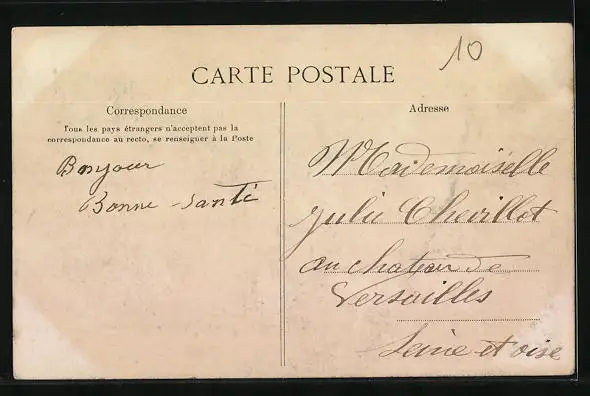 10
CARTE POSTALE
Correspondance
Tous les pays étrangers n'acceptent pas la
correspondance au recto, se renseigner à la Poste
Bonjour
Bonne santé
Adresse
Mademoiselle
Julie Chevillot
au chatau de
Versailles
Seine et oise